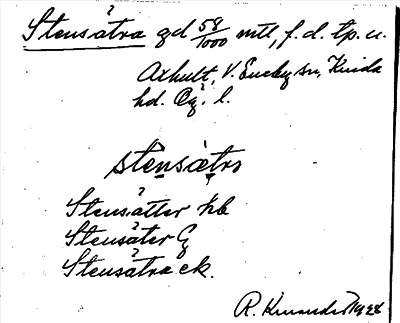 Stensätra gd 58/1000 mtl, f.d. tp. u.
Axhult, V. Eneby sn, Kinda
hd. Ög. l.
stensætrɒ
Stensätter kb
Stensäter G
Stensätra ek.
R.